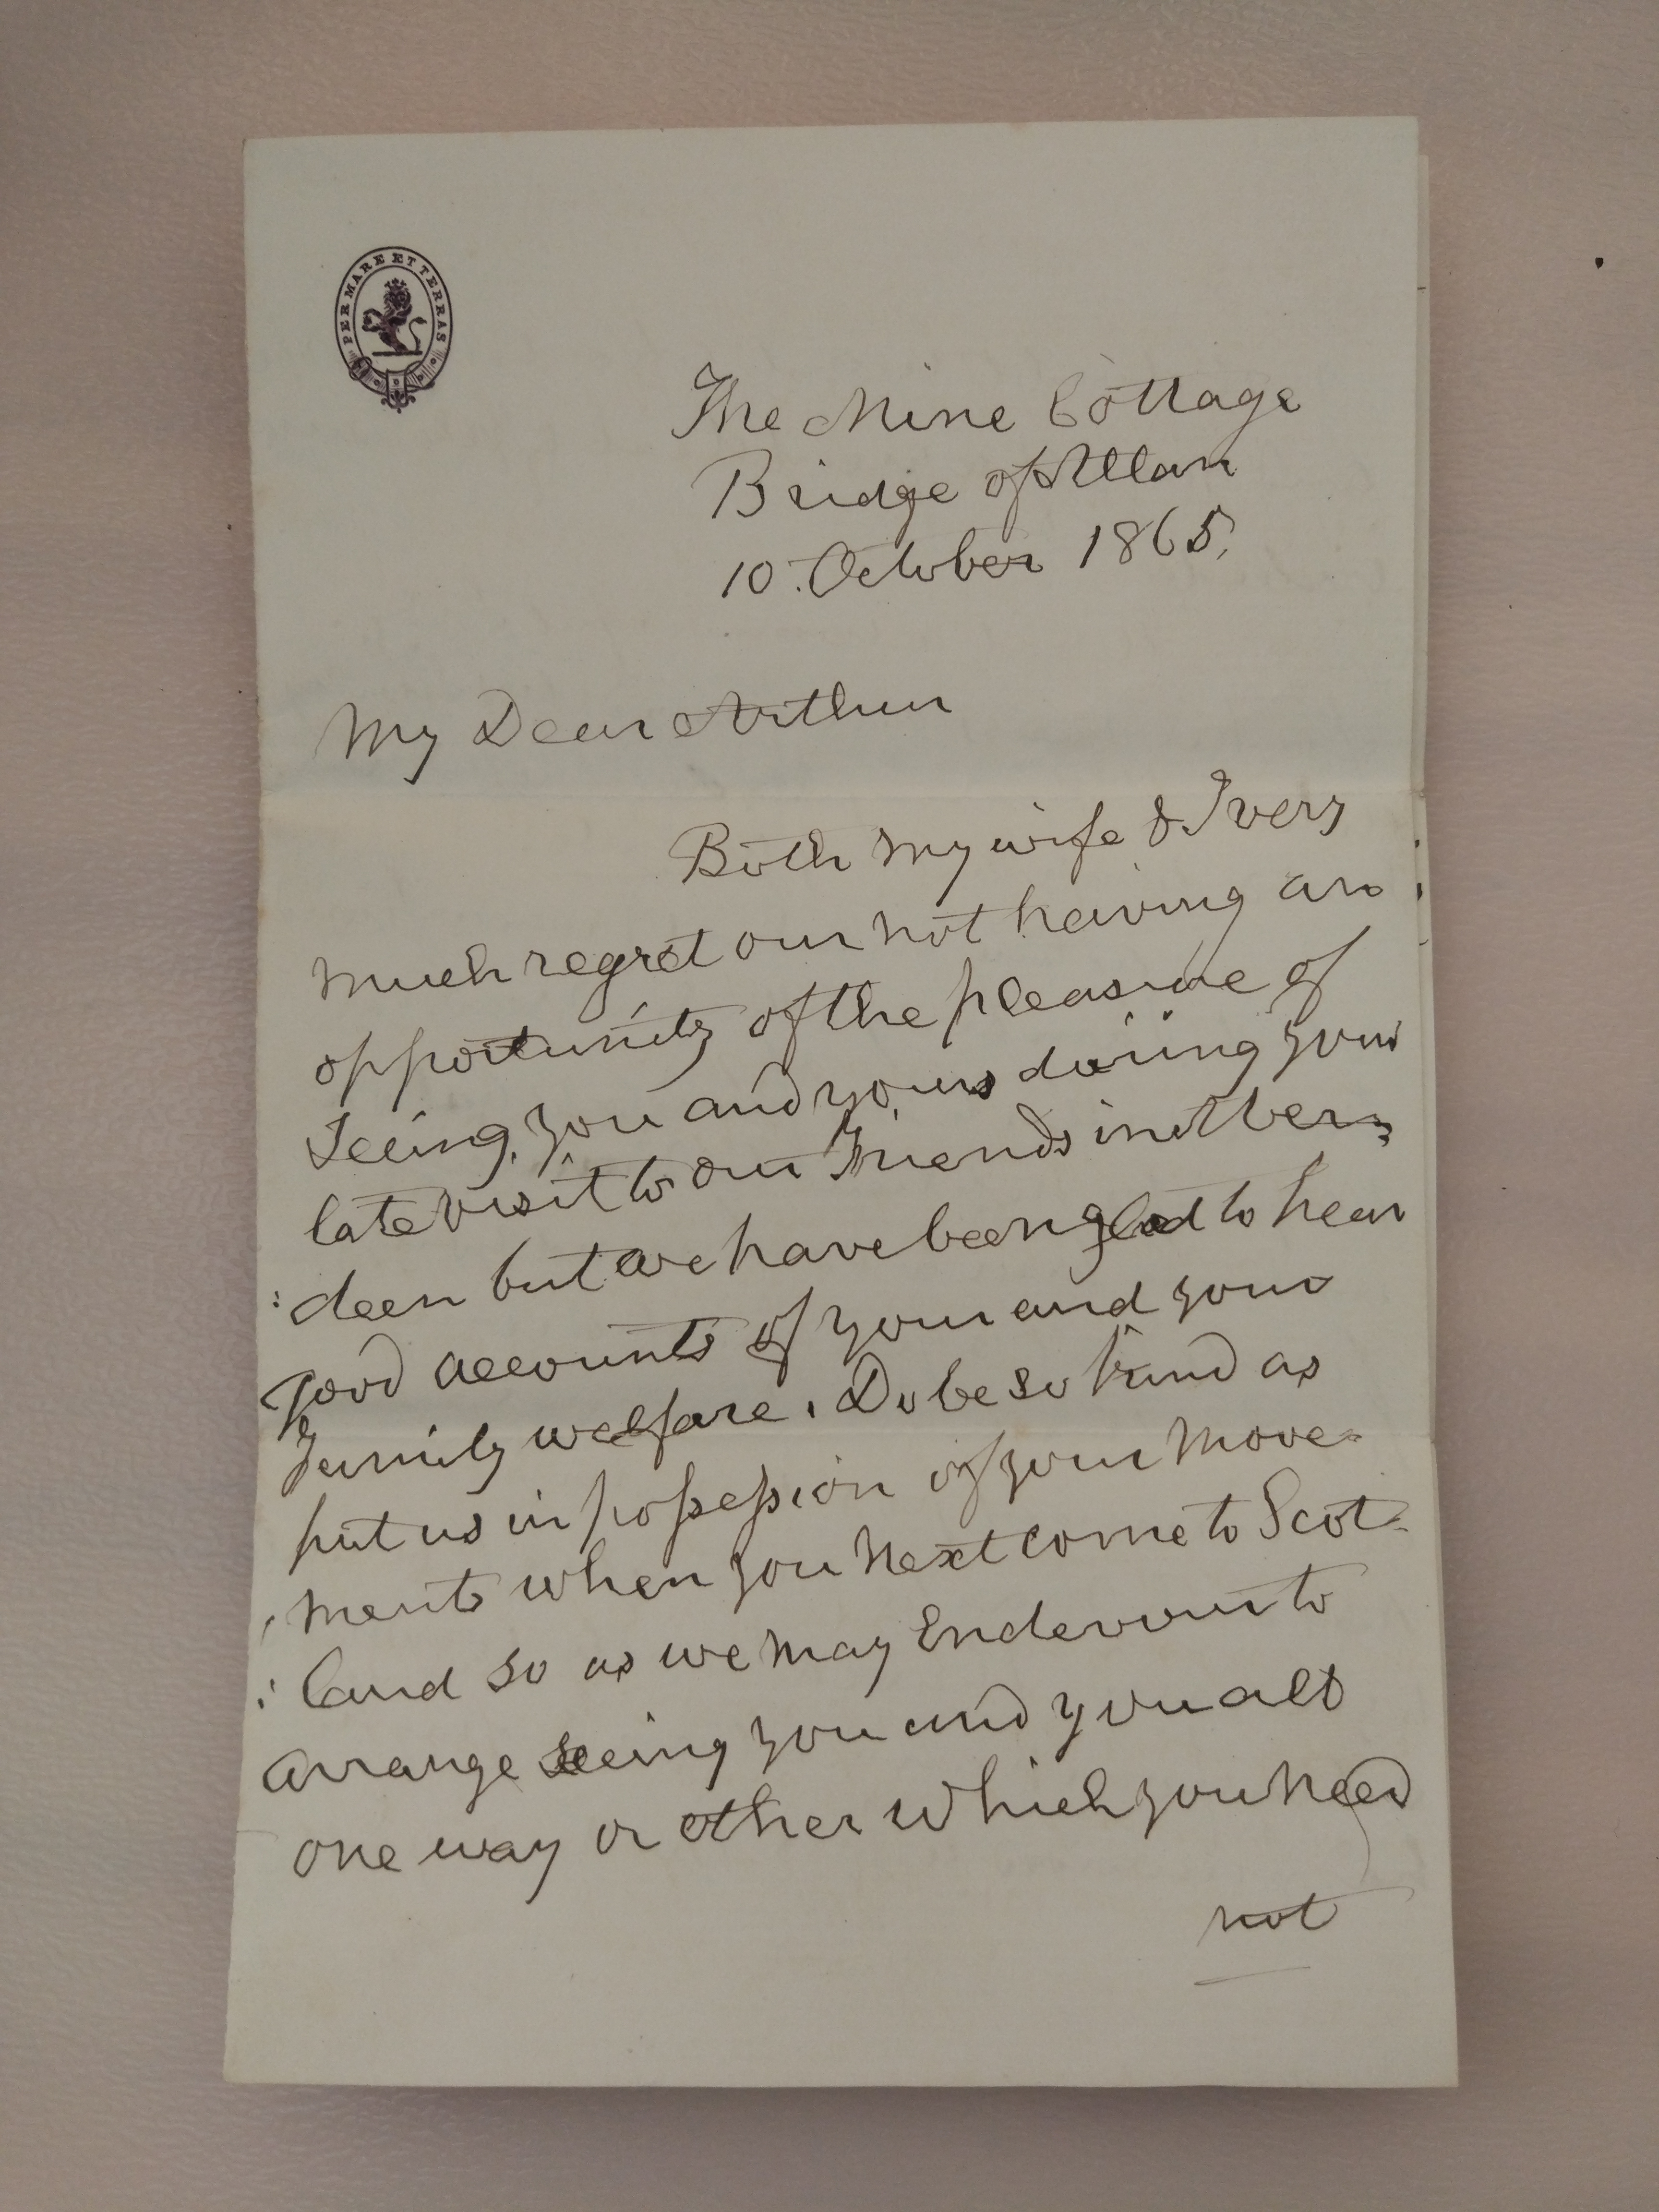 PER MARE ET TERRAS
The Mine Cottage
Bridge of Allan
10. October 1865.
My Dear Arthur
Both my wife & I very
much regret our not having an
opportunity of the pleasure of
seeing you and yours during your
late visit to our Friends in Aber=
:deen but we have been glad to hear
good accounts of your and your
Family welfare. Do be so kind as
put us in possession of your move=
:ments when you next come to Scot=
:land so as we may Endevour to
arrange seeing you and you all
one way or other which you need
not